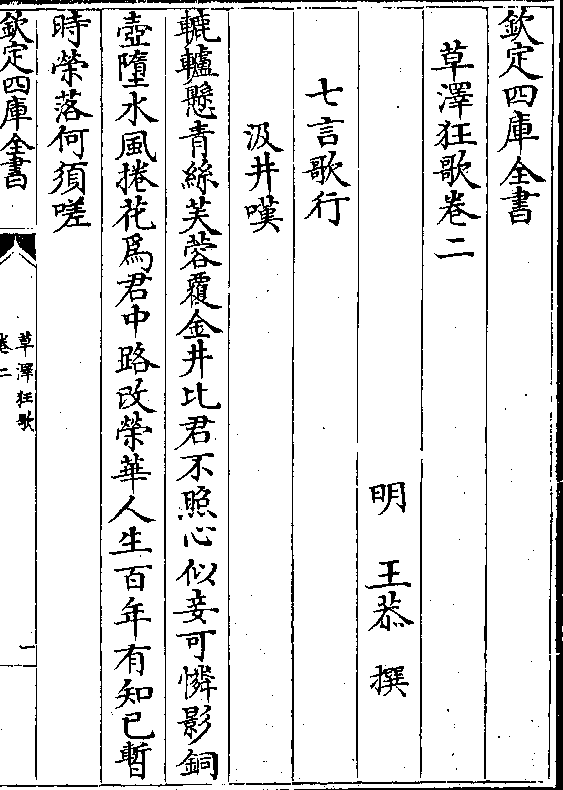 欽定四庫全書
草澤狂歌卷二
明 王恭 撰
七言歌行
汲井嘆
轆轤懸青絲芙蓉覆金井比君不照心似妾可憐影銅
壺墮水風捲花爲君中路改榮華人生百年有知已暫
時榮落何須嗟
欽定四庫全書
草澤狂歌
卷二
一